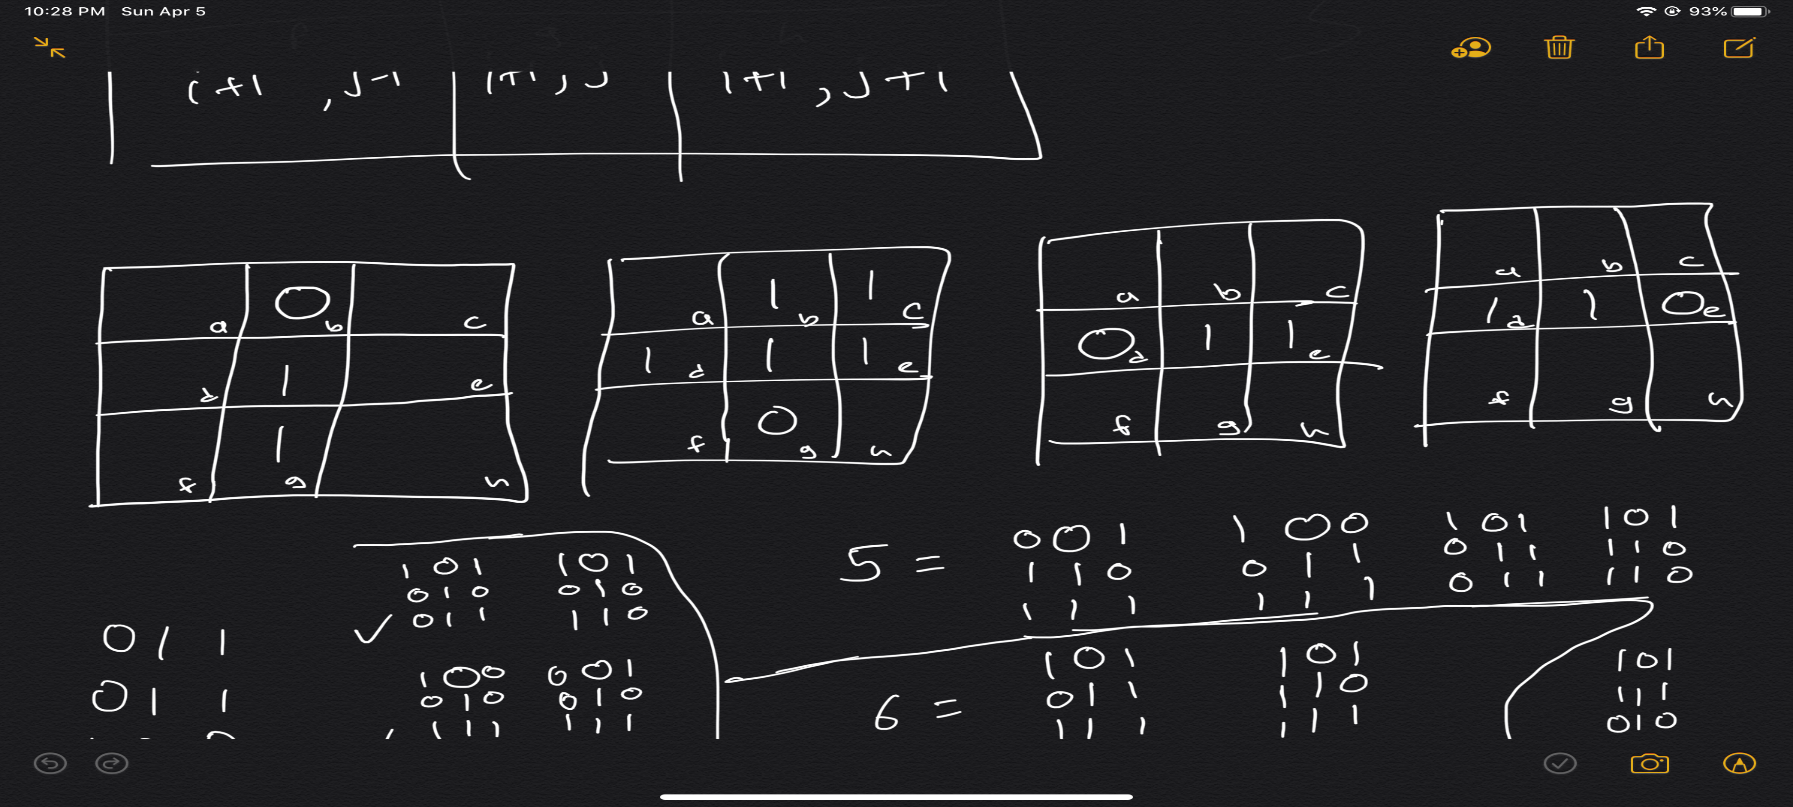 10:28 PM Sun Apr 5 93%
i+1 , j-1 i+1 , j i+1 , j+1
a 0 b c
d 1 e
f 1 g h
a 1 b 1 c
1 d 1 1 e
f 0 g h
a b c
0 d 1 1 e
f g h
a b c
1 d 1 0 e
f g h
5 = 0 0 1 1 0 0 1 0 1 1 0 1
1 1 0 0 1 1 0 1 1 1 1 0
1 1 1 1 1 1 0 1 1 1 1 0
1 0 1 1 0 1
0 1 0 0 1 0
0 1 1 1 1 0
0 1 1
0 1 1
1 0 0 0 0 1
0 1 0 0 1 0
1 1 1 1 1 1
6 = 1 0 1 1 0 1 1 0 1
0 1 1 1 1 0 1 1 1
1 1 1 1 1 1 0 1 0